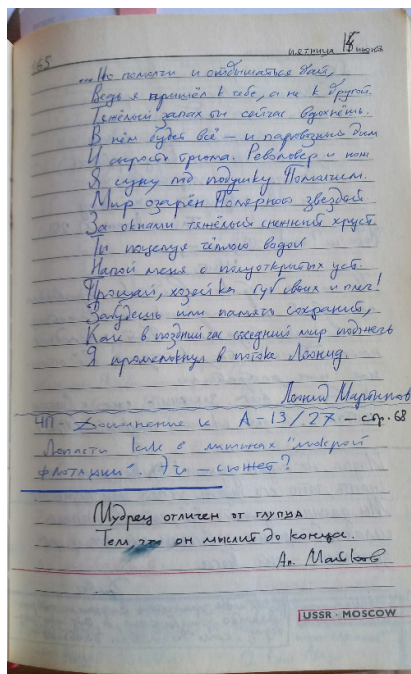 165
ПЯТНИЦА 15 ИЮНЯ
...Но помолчи и отдышаться дай,
Ведь я пришёл к тебе, а не к другой.
Тяжёлый запах ты сейчас вдохнёшь.
В нём будет всё – и паровозный дым
И сырость трюма. Револьвер и нож
Я суну под подушку. Помолчим.
Мир озарён Полярною звездой
За окнами тяжёлый снежный хруст
Ты поцелуя тёплою водой
Напой меня с полуоткрытых уст.
Прощай, хозяйка губ своих и плеч!
Забудешь или память сохранит,
Как в поздний час соседний мир поджечь
Я промелькнул в потоке Леонид.
Леонид Мартынов
ЧП - Дополнение к А-13/27 – стр. 68
Лопасти как в машинах "мокрой
флотации". Эго – сюжет?
Мудрец отличен от глупца
Тем, что он мыслит до конца.
Ап. Майков
USSR · MOSCOW